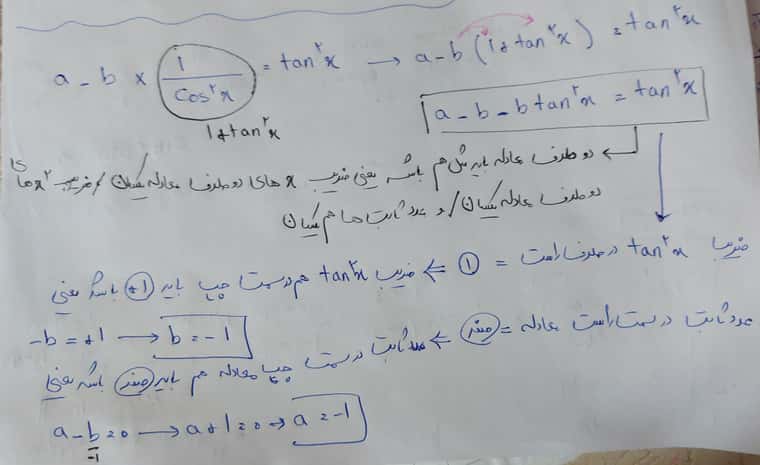 a - b × 1/Cos²x = tan²x → a - b (1 + tan²x) = tan²x
1 + tan²x
a - b - b tan²x = tan²x
دو طرف معادله باید مثل هم باشه یعنی ضریب x های دو طرف معادله یکسان / ضریب x² های
دو طرف معادله یکسان / و عدد ثابت ها هم یکسان
ضریب tan²x در طرف راست = 1 ⇐ ضریب tan²x هم در سمت چپ باید +1 باشه یعنی
-b = +1 → b = -1
عدد ثابت در سمت راست معادله = صفر ⇐ عدد ثابت در سمت چپ معادله هم باید صفر باشه یعنی
a - b = 0 → a + 1 = 0 → a = -1
-1